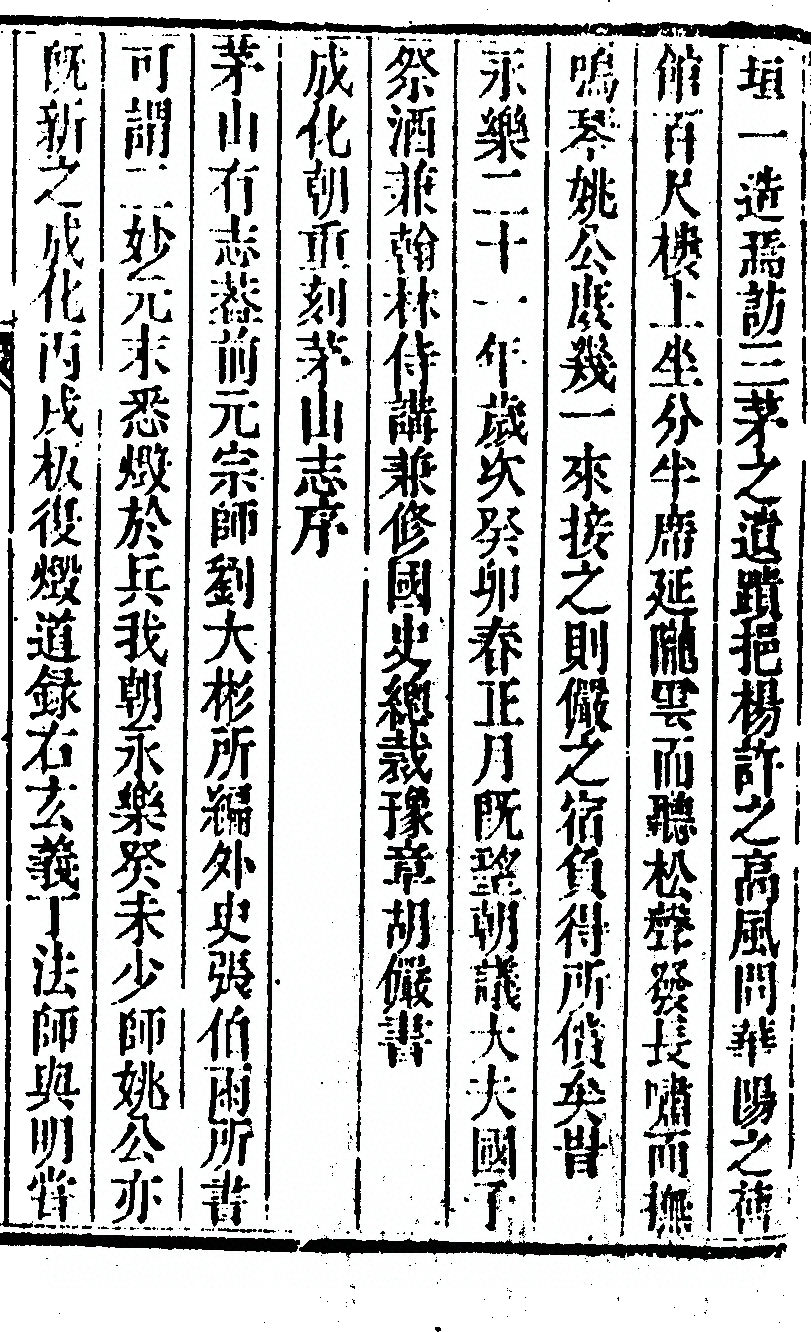 垣一造焉訪三茅之遺蹟挹楊許之高風問華陽之舊
館百尺樓上坐分半席延隴雲而聽松聲發長嘯而撫
鳴琴姚公庶幾一來接之則儼之宿負得所償矣時
永樂二十一年歲次癸卯春正月既望朝議大夫國子
祭酒兼翰林侍講兼修國史總裁豫章胡儼書
成化朝重刻茅山志序
茅山有志葢前元宗師劉大彬所編外史張伯雨所書
可謂二妙元末悉燬於兵我朝永樂癸未少師姚公亦
既新之成化丙戌板復燬道録右玄義丁法師與明嘗